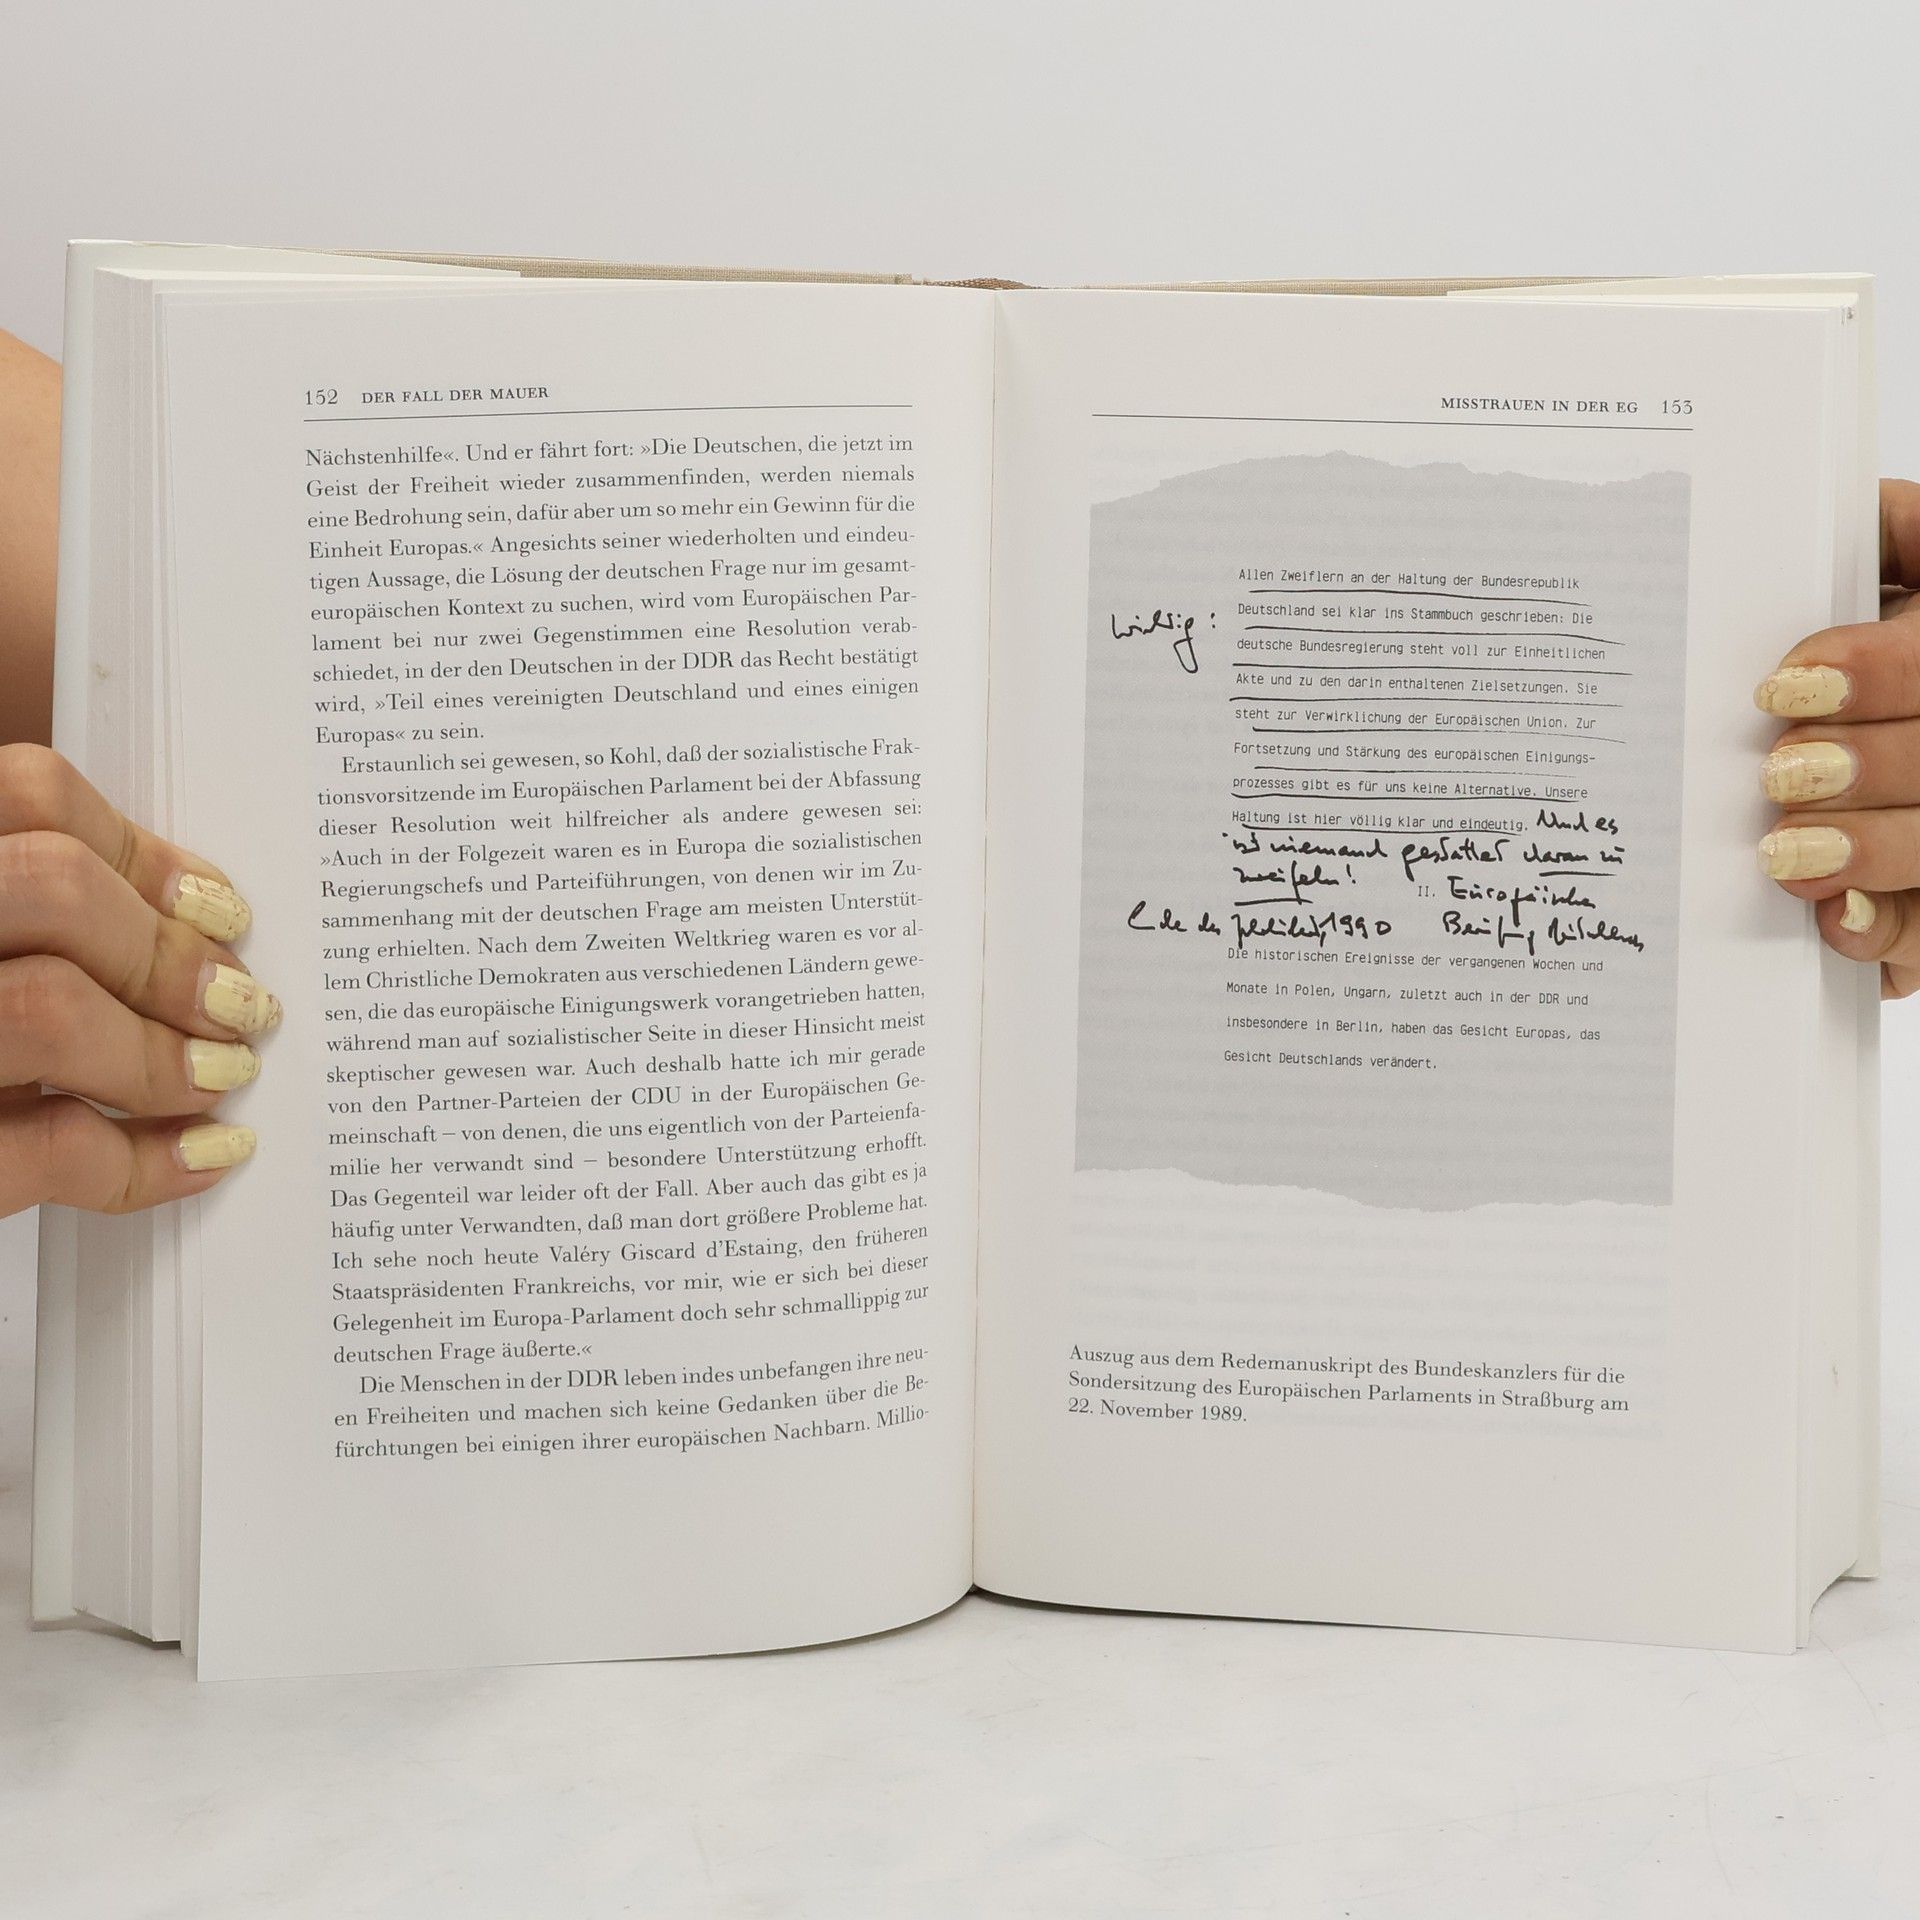 152 DER FALL DER MAUER
Nächstenhilfe«. Und er fährt fort: »Die Deutschen, die jetzt im
Geist der Freiheit wieder zusammenfinden, werden niemals
eine Bedrohung sein, dafür aber um so mehr ein Gewinn für die
Einheit Europas.« Angesichts seiner wiederholten und eindeu-
tigen Aussage, die Lösung der deutschen Frage nur im gesamt-
europäischen Kontext zu suchen, wird vom Europäischen Par-
lament bei nur zwei Gegenstimmen eine Resolution verab-
schiedet, in der den Deutschen in der DDR das Recht bestätigt
wird, »Teil eines vereinigten Deutschland und eines einigen
Europas« zu sein.
Erstaunlich sei gewesen, so Kohl, daß der sozialistische Frak-
tionsvorsitzende im Europäischen Parlament bei der Abfassung
dieser Resolution weit hilfreicher als andere gewesen sei:
»Auch in der Folgezeit waren es in Europa die sozialistischen
Regierungschefs und Parteiführungen, von denen wir im Zu-
sammenhang mit der deutschen Frage am meisten Unterstüt-
zung erhielten. Nach dem Zweiten Weltkrieg waren es vor al-
lem Christliche Demokraten aus verschiedenen Ländern gewe-
sen, die das europäische Einigungswerk vorangetrieben hatten,
während man auf sozialistischer Seite in dieser Hinsicht meist
skeptischer gewesen war. Auch deshalb hatte ich mir gerade
von den Partner-Parteien der CDU in der Europäischen Ge-
meinschaft – von denen, die uns eigentlich von der Parteienfa-
milie her verwandt sind – besondere Unterstützung erhofft.
Das Gegenteil war leider oft der Fall. Aber auch das gibt es ja
häufig unter Verwandten, daß man dort größere Probleme hat.
Ich sehe noch heute Valéry Giscard d’Estaing, den früheren
Staatspräsidenten Frankreichs, vor mir, wie er sich bei dieser
Gelegenheit im Europa-Parlament doch sehr schmallippig zur
deutschen Frage äußerte.«
Die Menschen in der DDR leben indes unbefangen ihre neu-
en Freiheiten und machen sich keine Gedanken über die Be-
fürchtungen bei einigen ihrer europäischen Nachbarn. Millio-
MISSTRAUEN IN DER EG 153
Allen Zweiflern an der Haltung der Bundesrepublik
wichtig:
Deutschland sei klar ins Stammbuch geschrieben: Die
deutsche Bundesregierung steht voll zur Einheitlichen
Akte und zu den darin enthaltenen Zielsetzungen. Sie
steht zur Verwirklichung der Europäischen Union. Zur
Fortsetzung und Stärkung des europäischen Einigungs-
prozesses gibt es für uns keine Alternative. Unsere
Haltung ist hier völlig klar und eindeutig. Und es
ist niemand gestattet daran zu
zweifeln!
II. Europäische
1990
Die historischen Ereignisse der vergangenen Wochen und
Monate in Polen, Ungarn, zuletzt auch in der DDR und
insbesondere in Berlin, haben das Gesicht Europas, das
Gesicht Deutschlands verändert.
Auszug aus dem Redemanuskript des Bundeskanzlers für die
Sondersitzung des Europäischen Parlaments in Straßburg am
22. November 1989.